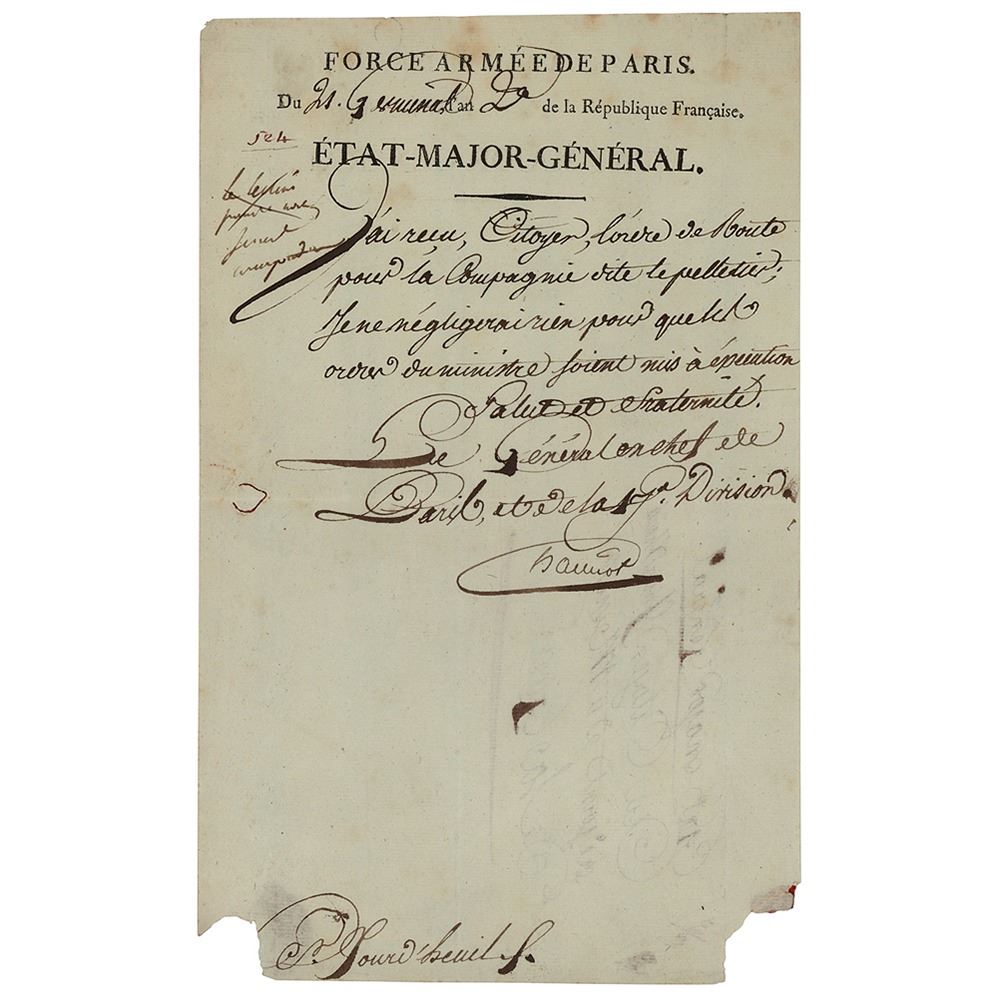 FORCE ARMÉE DE PARIS.
Du 21. Germinal l'an 2e de la République Française.
524
ÉTAT-MAJOR-GÉNÉRAL.
J'ai reçu, Citoyen, l'ordre de Route
pour la Compagnie dite lepelletier;
Je ne négligerai rien pour que les
ordres du ministre soient mis à éxécution
Salut et Fraternité.
Le Général en chef de
Paris, et de la 17e. Division.
hanriot
Cn Jourd'heuil